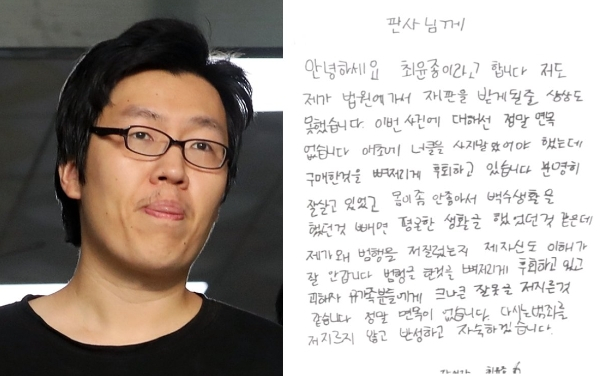 판사님께
안녕하세요 최윤종이라고 합니다 저도
제가 법원에가서 재판을 받게될줄 상상도
못했습니다. 이번 사건에 대해선 정말 면목
없습니다 애초에 너클을 사지말았어야 했는데
구매한것을 뼈저리게 후회하고 있습니다 분명히
잘살고 있었고 몸이좀 안좋아서 백수생활을
했던것 빼면 평글한 생활을 했었던것 같은데
제가왜 범행을 저질렀는지 제자신도 이해가
잘 안갑니다 범행을 한것을 뼈저리게 후회하고 있고
피해자 유가족분들에게 크나큰 잘못을 저지른것
같습니다 정말 면목이 없습니다. 다시는범죄를
저지르지 않고 반성하고 자숙하겠습니다.
최윤종